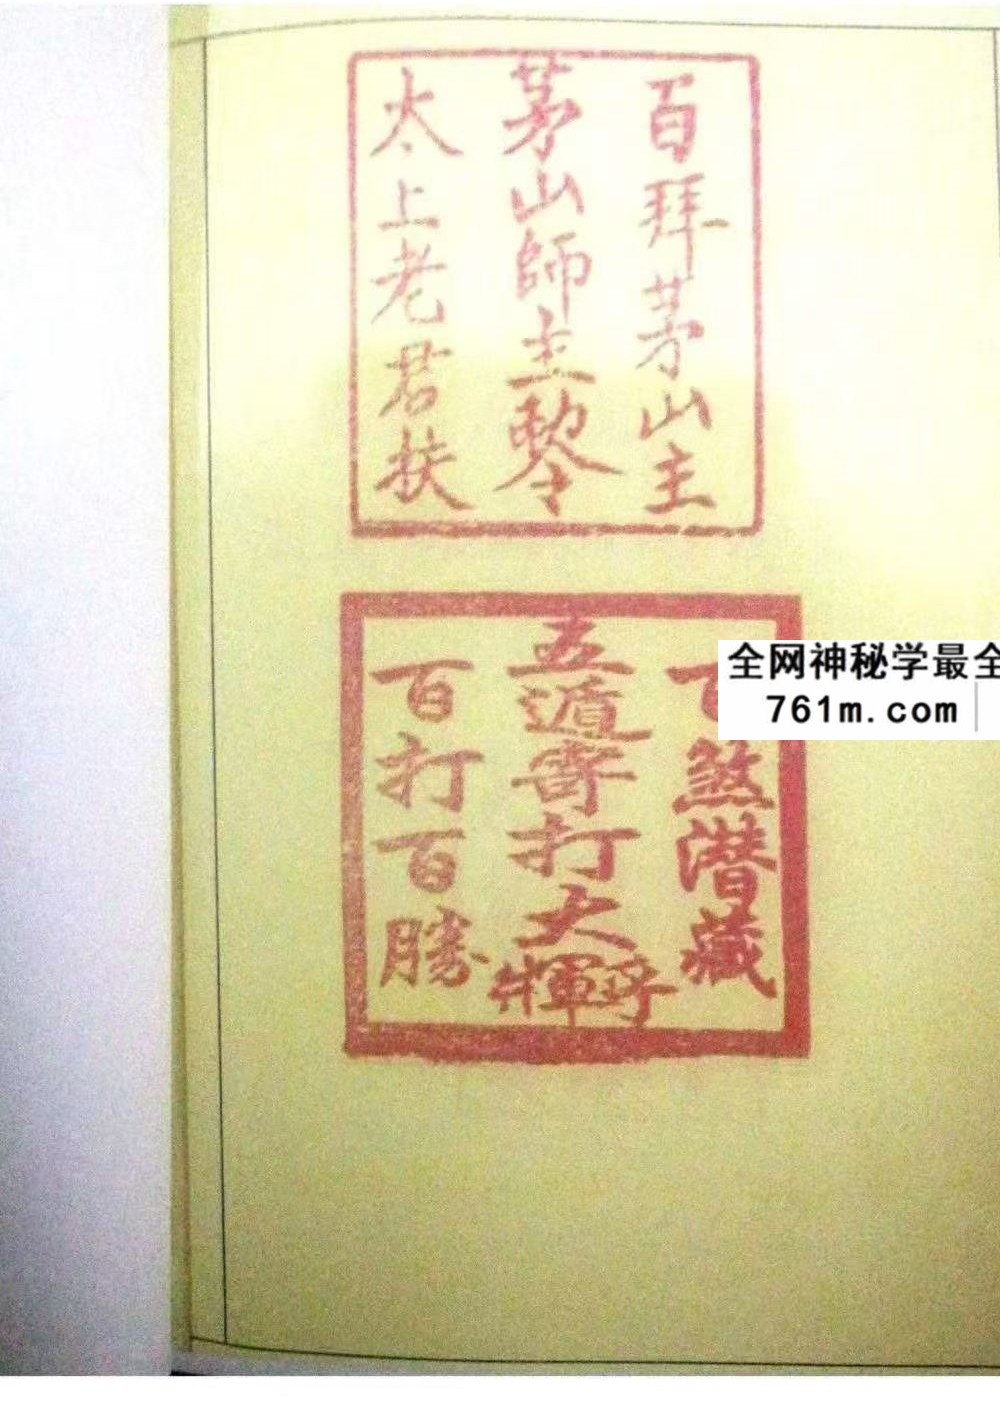 百拜茅山主
茅山師主黎令
太上老君扶
煞潜藏
五遁寄打大
百打百勝
全网神秘学最全
761m.com